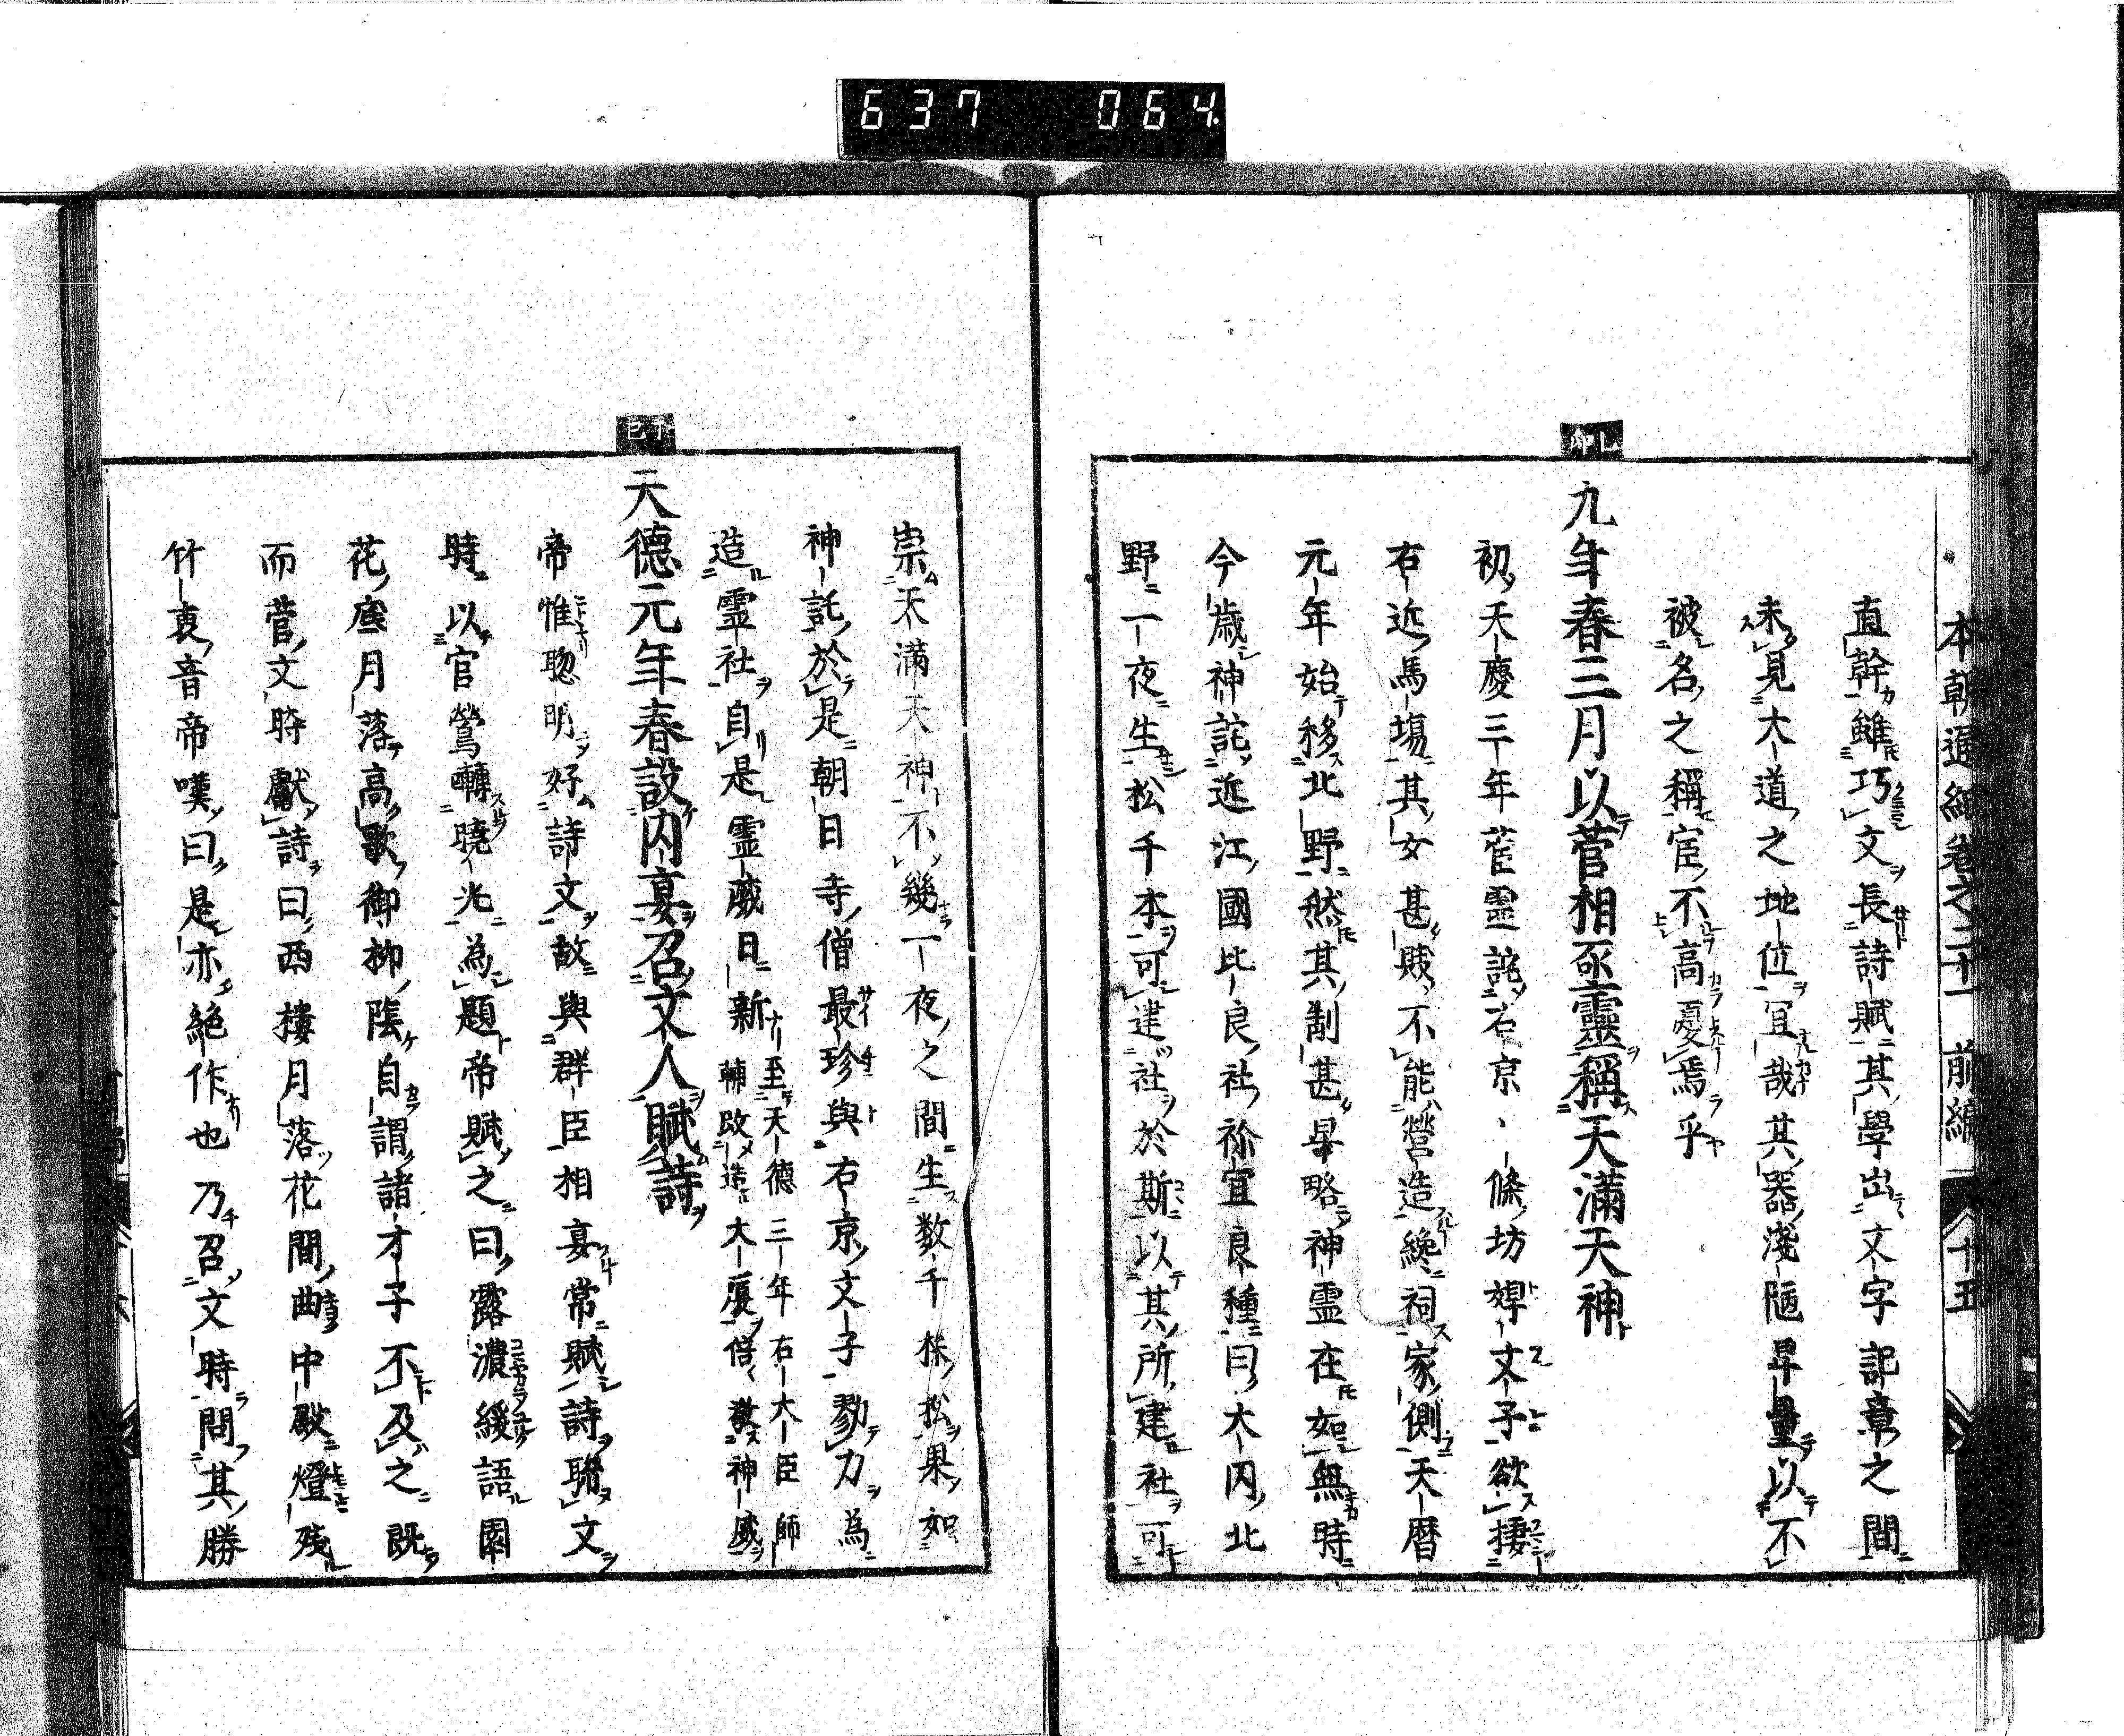 637 064
本朝通紀卷之二十一 前編 十五
直幹雖巧文長詩賦其學出文字記章之間
未見大道之地位冝哉其器淺陋昇量以不
被名之稱宦不高憂焉乎
卯
九年春三月以菅相丞靈稱天滿天神
初天慶三年菅霊託右京、條坊婢文子欲棲
右近馬場其女甚賎不能營造纔祠家側天暦
元年始移北野然其制甚畧神霊在如無時
今歳神託近江國比良社祢宜良種曰大内北
野一夜生松千本可建社於斯以其所建社可
崇天滿天神不幾一夜之間生数千株松果如
神託於是朝日寺僧最珍與右京文子勠力為
造霊社自是霊威日新
至天德三年右大臣師
輔改造大厦倍敬神威
丁巳
天德元年春設内宴召文人賦詩
帝惟聦明好詩文故與群臣相宴常賦詩聯文
時以宦鶯囀曉光為題帝賦之曰露濃緩語園
花底月落高歌御柳隂自謂諸才子不及之既
而菅文時獻詩曰西樓月落花間曲中殿燈残
竹裏音帝嘆曰是亦絶作也乃召文時問其勝